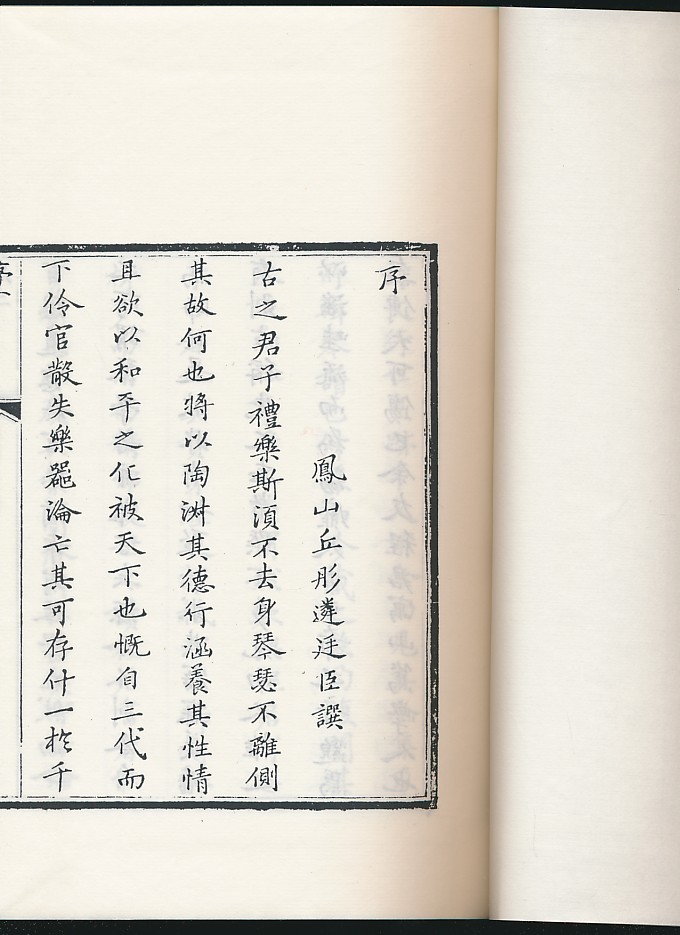 序
鳳山丘彤遴廷臣譔
古之君子禮樂斯湏不去身琴瑟不離側
其故何也將以陶淑其德行涵養其性情
且欲以和平之化被天下也慨自三代而
下伶官散失樂器淪亡其可存什一扵千